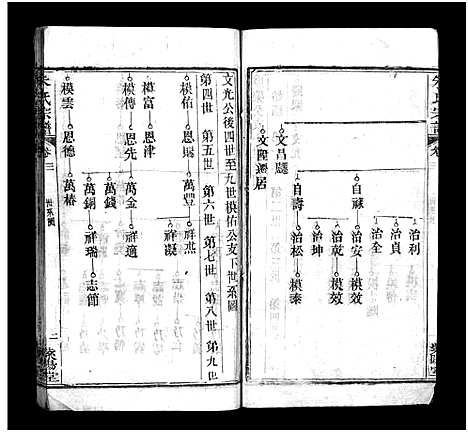 朱氏宗譜
卷
治利
治貞
治全
自祿 治安 模效
治乾 模效
治坤
自壽 治松 模泰
文昌 廳
文陞 遷居
文光公後四世至九世模佑公支下世系圖
第四世 第五世 第六世 第七世 第八世 第九世
模佑 恩 萬豐 祥燕
祥凝
模富 恩津
模傳 恩先 萬金 祥適
萬錢
萬銅 祥瑞 志節
模雲 恩德 萬椿
朱氏宗譜
卷三
世系圖
二